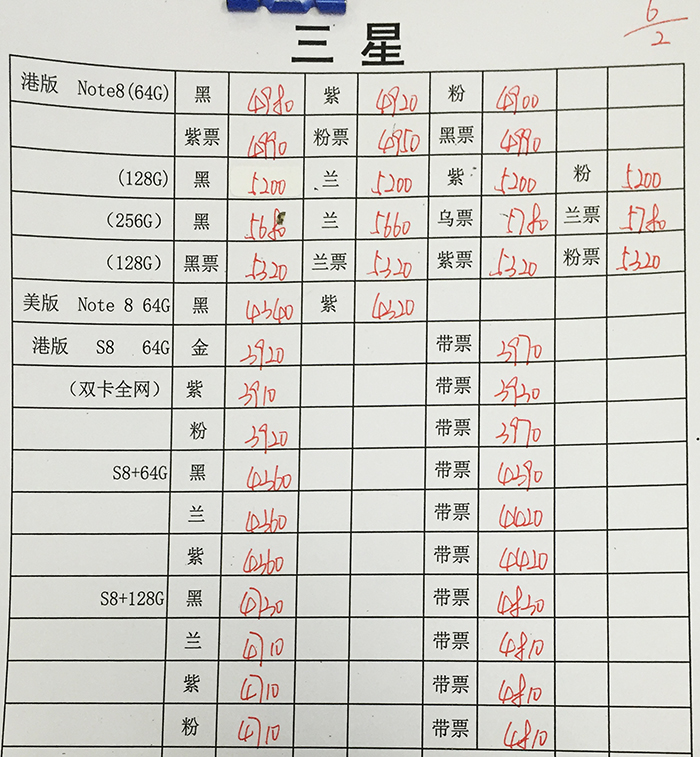 6/2
三星
港版 Note8(64G) 黑 4980 紫 4920 粉 4900
紫票 4990 粉票 4950 黑票 4990
(128G) 黑 5200 兰 5200 紫 5200 粉 5200
(256G) 黑 5680 兰 5660 乌票 5780 兰票 5780
(128G) 黑票 5320 兰票 5320 紫票 5320 粉票 5320
美版 Note 8 64G 黑 4340 紫 4320
港版 S8 64G 金 3920 带票 3970
(双卡全网) 紫 3910 带票 3930
粉 3920 带票 3970
S8+64G 黑 4360 带票 4390
兰 4360 带票 4420
紫 4360 带票 4420
S8+128G 黑 4730 带票 4830
兰 4710 带票 4810
紫 4710 带票 4810
粉 4710 带票 4810